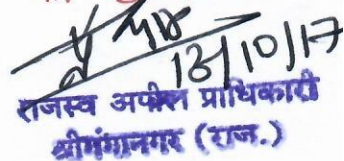 13/10/17
राजस्व अपील प्राधिकारी
श्रीगंगानगर (राज.)